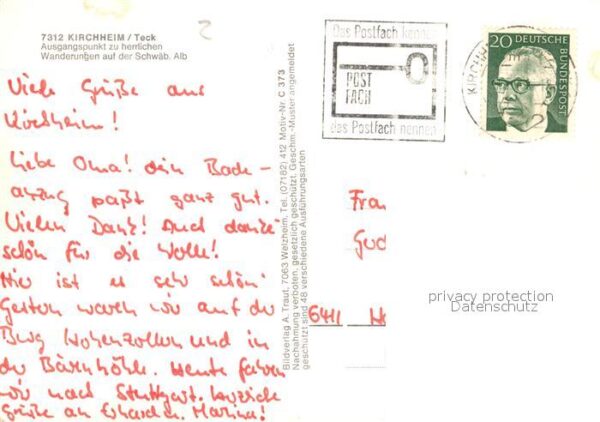 7312 KIRCHHEIM / Teck
Ausgangspunkt zu herrlichen
Wanderungen auf der Schwäb. Alb
2
Viele Grüße aus
Kirchheim!
Liebe Oma! Dein Bade-
anzug paßt ganz gut.
Vielen Dank! Auch danke
schön für die Wolle!
Hier ist es sehr schön
Gestern waren wir auf der
Burg Hohenzollern und in
der Bärenhöhle. Heute fahren
wir nach Stuttgart. Herzliche
Grüße an Erhard. Marina!
Bildverlag A. Traut, 7063 Welzheim, Tel. (07182) 412 Motiv-Nr. C 373
Nachahmung verboten, gesetzlich geschützt, Geschm.-Muster angemeldet
geschützt sind 48 verschiedene Ausführungsarten
Das Postfach kennen
POST
FACH
das Postfach nennen
KIRCHH
20 DEUTSCHE
BUNDESPOST
Frau
6411
privacy protection
Datenschutz